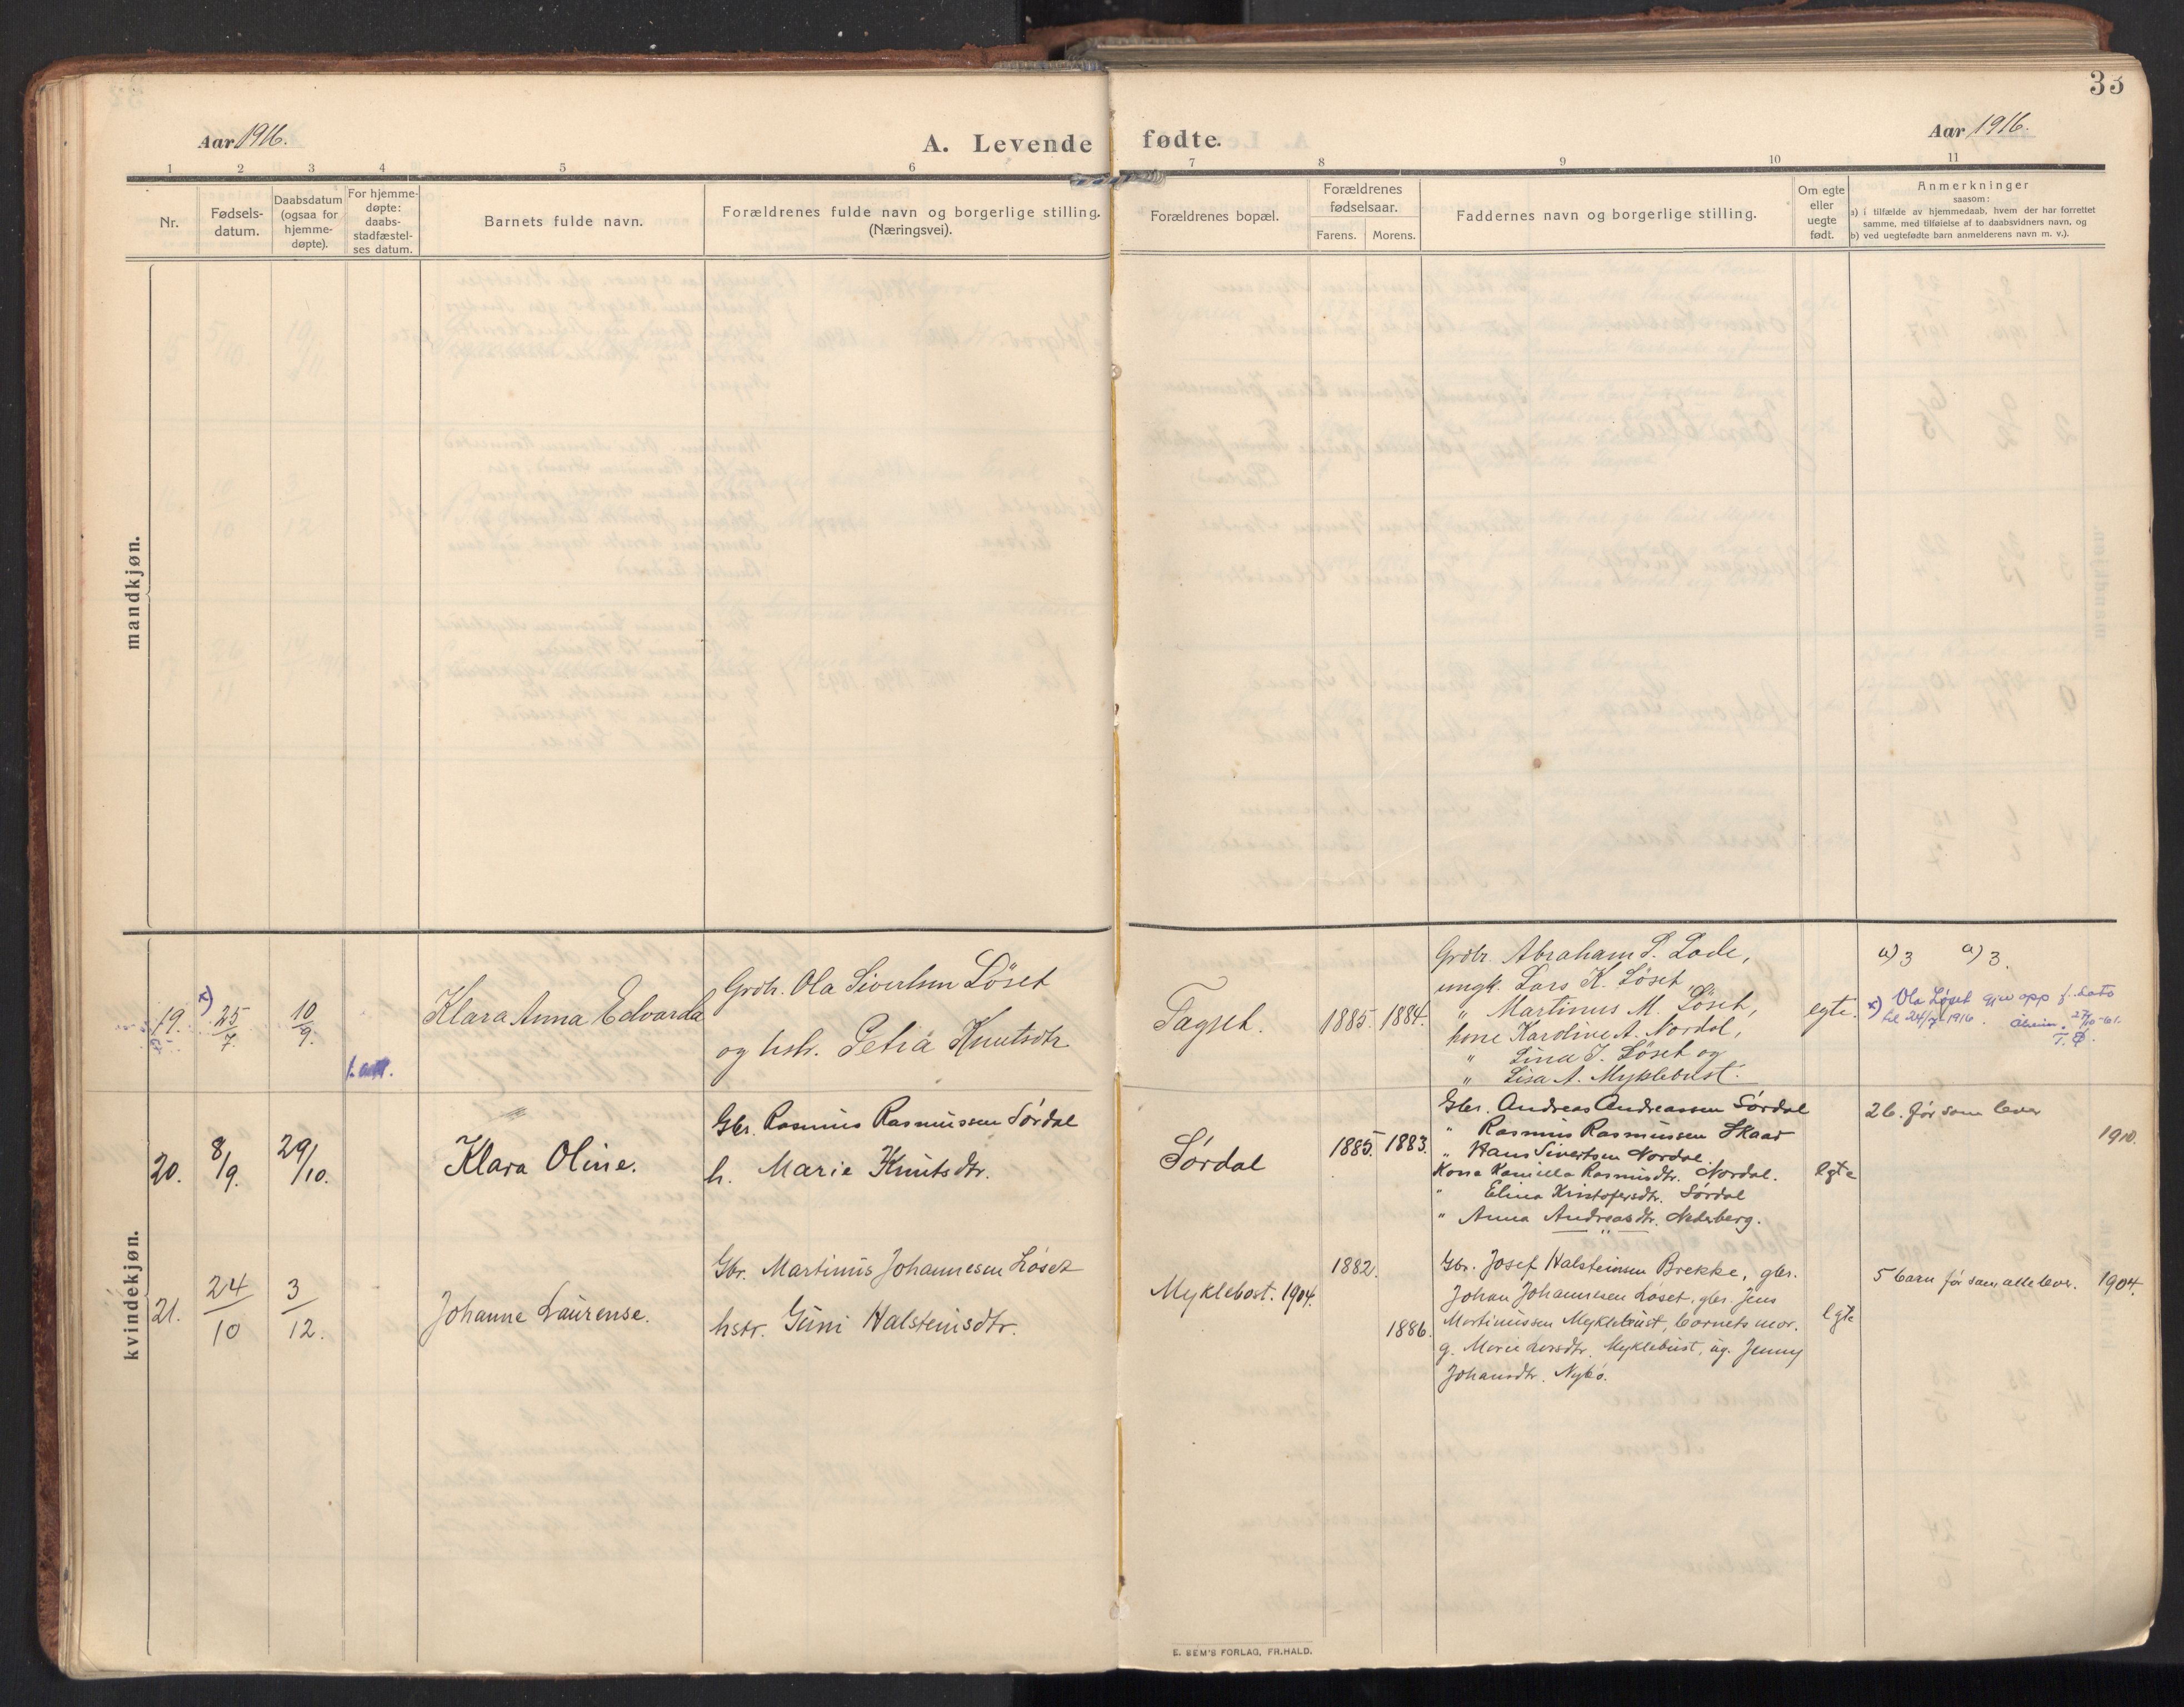 33
Aar 1916.
A. Levende fødte.
Aar 1916.
1 2 3 4 5 6 7 8 9 10 11
Nr.
Fødsels-
datum.
Daabsdatum
(ogsaa for
hjemme-
døpte).
For hjemme-
døpte:
daabs-
stadfæstel-
ses datum.
Barnets fulde navn.
Forældrenes fulde navn og borgerlige stilling.
(Næringsvei).
Forældrenes bopæl.
Forældrenes
fødselsaar.
Farens. Morens.
Faddernes navn og borgerlige stilling.
Om egte
eller
uegte
født.
Anmerkninger
saasom:
a) i tilfælde av hjemmedaab, hvem der har forrettet
samme, med tilføielse af to daabsvidners navn, og
b) ved uegtefødte barn anmelderens navn m. v.).
mandkjøn.
kvindekjøn.
19. x) 25/7. 10/9.
Klara Anna Edvarda
Grdbr. Ola Sivertsen Löset
og hstr. Petra Knutsdtr
Fagset.
1885. 1884.
Grdbr. Abraham P. Lade,
ungk. Lars K. Löset,
" Martinus M. Löset,
kone Karoline A. Nordal,
" Lina J. Löset og
" Lisa A. Myklebust.
egte.
a) 3 a) 3.
x) Ola Løset gjev opp f. dato
til 24/7-1916. Åheim. 27/10-61.
T.Ø.
1. att.
20. 8/9. 29/10.
Klara Oline.
Gbr. Rasmus Rasmussen Sørdal
h. Marie Knutsdtr.
Sørdal
1885. 1883.
Gbr. Andreas Andreassen Sørdal
" Rasmus Rasmussen Skaar
" Hans Sivertsen Nordal.
Kone Kamilla Rasmusdtr. Nordal.
" Elina Kristofersdtr. Sørdal
" Anna Andreasdtr. Nederberg.
egte
2 b. før som lever
1910.
21. 24/10 3/12.
Johanne Laurense.
Gbr. Martinus Johannesen Løset
hstr. Guni Halsteinsdtr.
Myklebost. 1904.
1882.
1886.
Gbr. Josef Halsteinsen Brekke, gbr.
Johan Johannesen Løset, gbr. Jens
Martinussen Myklebust, barnets mor.
g. Marie Larsdtr. Myklebust, ug. Jenny
Johansdtr. Nybø.
egte
5 barn før som alle lever. 1904.
E. SEM'S FORLAG, FR.HALD.